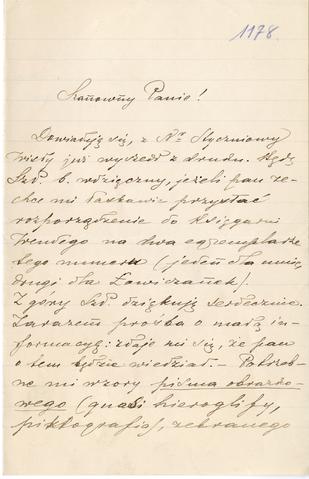 1178.
Szanowny Panie!
Dowiaduję się, z Nr Styczniowy
Wisły już wyszedł z druku. Będę
Szp. b. wdzięczny, jeżeli pan ze-
chce mi łaskawie przysłać
rozporządzenie do Księgarni
Wendego na dwa egzemplarze
tego numeru (jeden dla mnie,
drugi dla Łowiczanek).
Z góry Szp. dziękuję serdecznie.
Zarazem prośba o małą in-
formacyę: zdaje mi się, że pan
o tem będzie wiedział. – Potrzeb-
ne mi wzory pisma obrazko-
wego (quasi hieroglify,
piktografia), zebranego